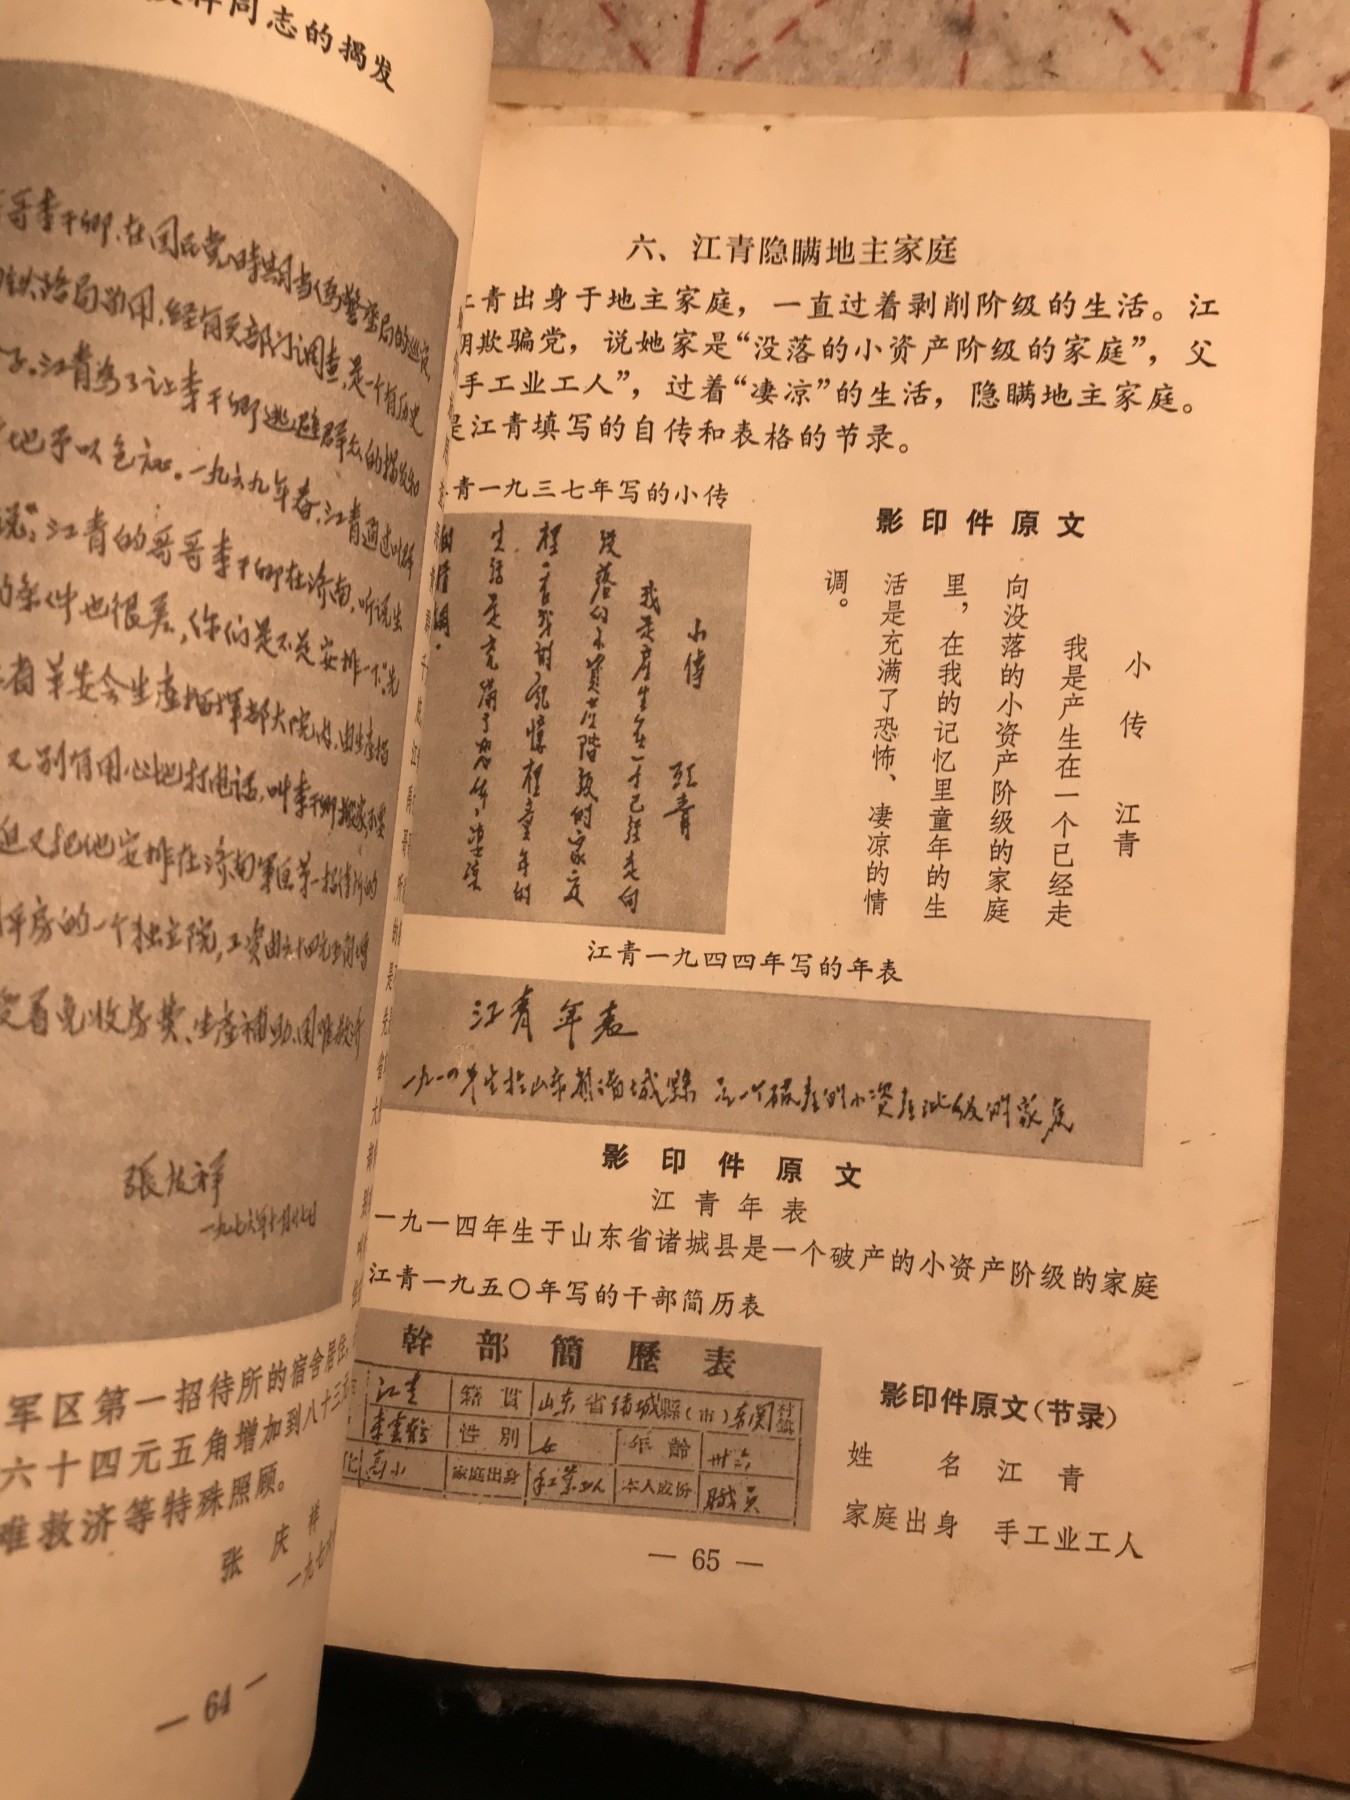 同志的揭发
哥李干卿,在国民党时期当伪警察局的巡官
铁路局雇用,经有关部门调查,是一个有历史
子。江青为了让李干卿逃避群众的揭发和
地予以包袒。一九六九年春,江青通过
说:“江青的哥哥李干卿在济南,听说生
的条件也很差,你们是不是安排一下”。先
省革委会生产指挥部大院内,由生产指
又别有用心地打电话,叫李干卿搬家不要
迫又把他安排在济南军区第一招待所的
平房的一个独立院,工资由六十四元五角增
受着免收房费、生产补助、困难救济
張慶祥
一九七六年十月
军区第一招待所的宿舍居住,
六十四元五角增加到八十三元
难救济等特殊照顾。
张庆祥
一九七六
— 64 —
六、江青隐瞒地主家庭
江青出身于地主家庭,一直过着剥削阶级的生活。江
欺骗党,说她家是“没落的小资产阶级的家庭”,父
手工业工人”,过着“凄凉”的生活,隐瞒地主家庭。
是江青填写的自传和表格的节录。
青一九三七年写的小传
小傳 江青
我是產生在一个已经走向
没落的小資产階級的家庭
裡,在我的記憶裡童年的
生活是充满了恐怖、凄凉
的情調.
影印件原文
小传 江青
我是产生在一个已经走
向没落的小资产阶级的家庭
里,在我的记忆里童年的生
活是充满了恐怖、凄凉的情
调。
江青一九四四年写的年表
江青年表
一九一四年生於山东省諸城縣 是一个破產的小資產階級的家庭
影印件原文
江青年表
一九一四年生于山东省诸城县是一个破产的小资产阶级的家庭
江青一九五〇年写的干部简历表
幹部簡歷表
江青 籍貫 山东省諸城縣(市)东関村鎮
李雲鹤 性別 女 年齡 卅六
高小 家庭出身 手工業工人 本人成份 職員
影印件原文(节录)
姓名 江青
家庭出身 手工业工人
— 65 —